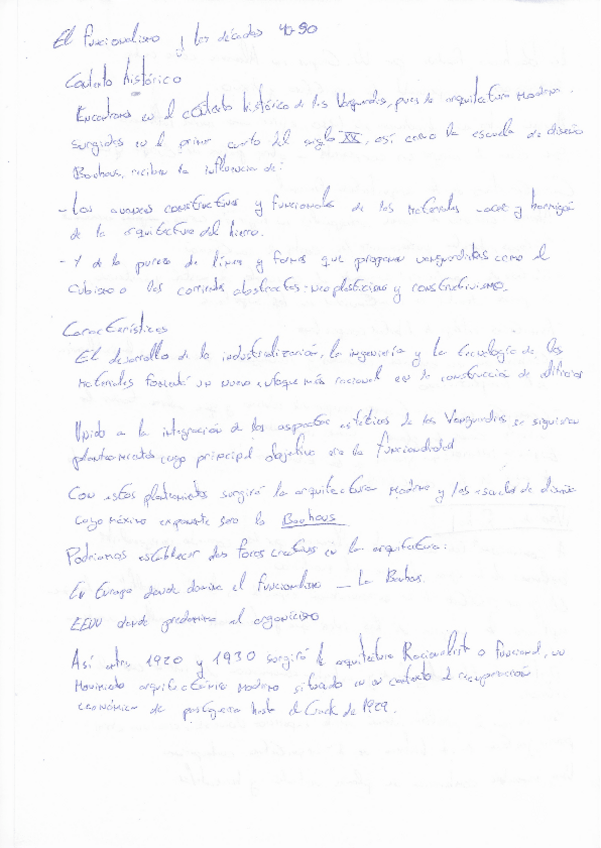 El funcionalismo y las décadas 40-50
Contexto histórico
Encontramos en el contexto histórico de las Vanguardias, pues la arquitectura Moderna
surgidas en el primer cuarto del siglo XX, así como la escuela de diseño
Bauhaus, reciben la influencia de:
- Los avances constructivos y funcionales de los materiales -acero y hormigón
de la arquitectura del hierro.
- Y de la pureza de línea y formas que proponen vanguardistas como el
Cubismo o las corrientes abstractas: neoplasticismo y constructivismo.
Características
El desarrollo de la industrialización, la ingeniería y la tecnología de los
Materiales fomentó un nuevo enfoque más racional en la construcción de edificios
Unido a la integración de los aspectos estéticos de las Vanguardias se siguieron
planteamientos cuyo principal objetivo era la funcionalidad
Con estos planteamientos surgirá la arquitectura Moderna y las escuelas de diseño
cuyo máximo exponente será la Bauhaus
Podríamos establecer dos focos creativos en la arquitectura:
En Europa donde domina el funcionalismo - La Bauhaus.
EEUU donde predomina el organicismo
Así entre 1920 y 1930 surgirá la arquitectura Racionalista o funcional, un
Movimiento arquitectónico Moderno situado en un contexto de recuperación
económica de postguerra hasta el Crack de 1929.